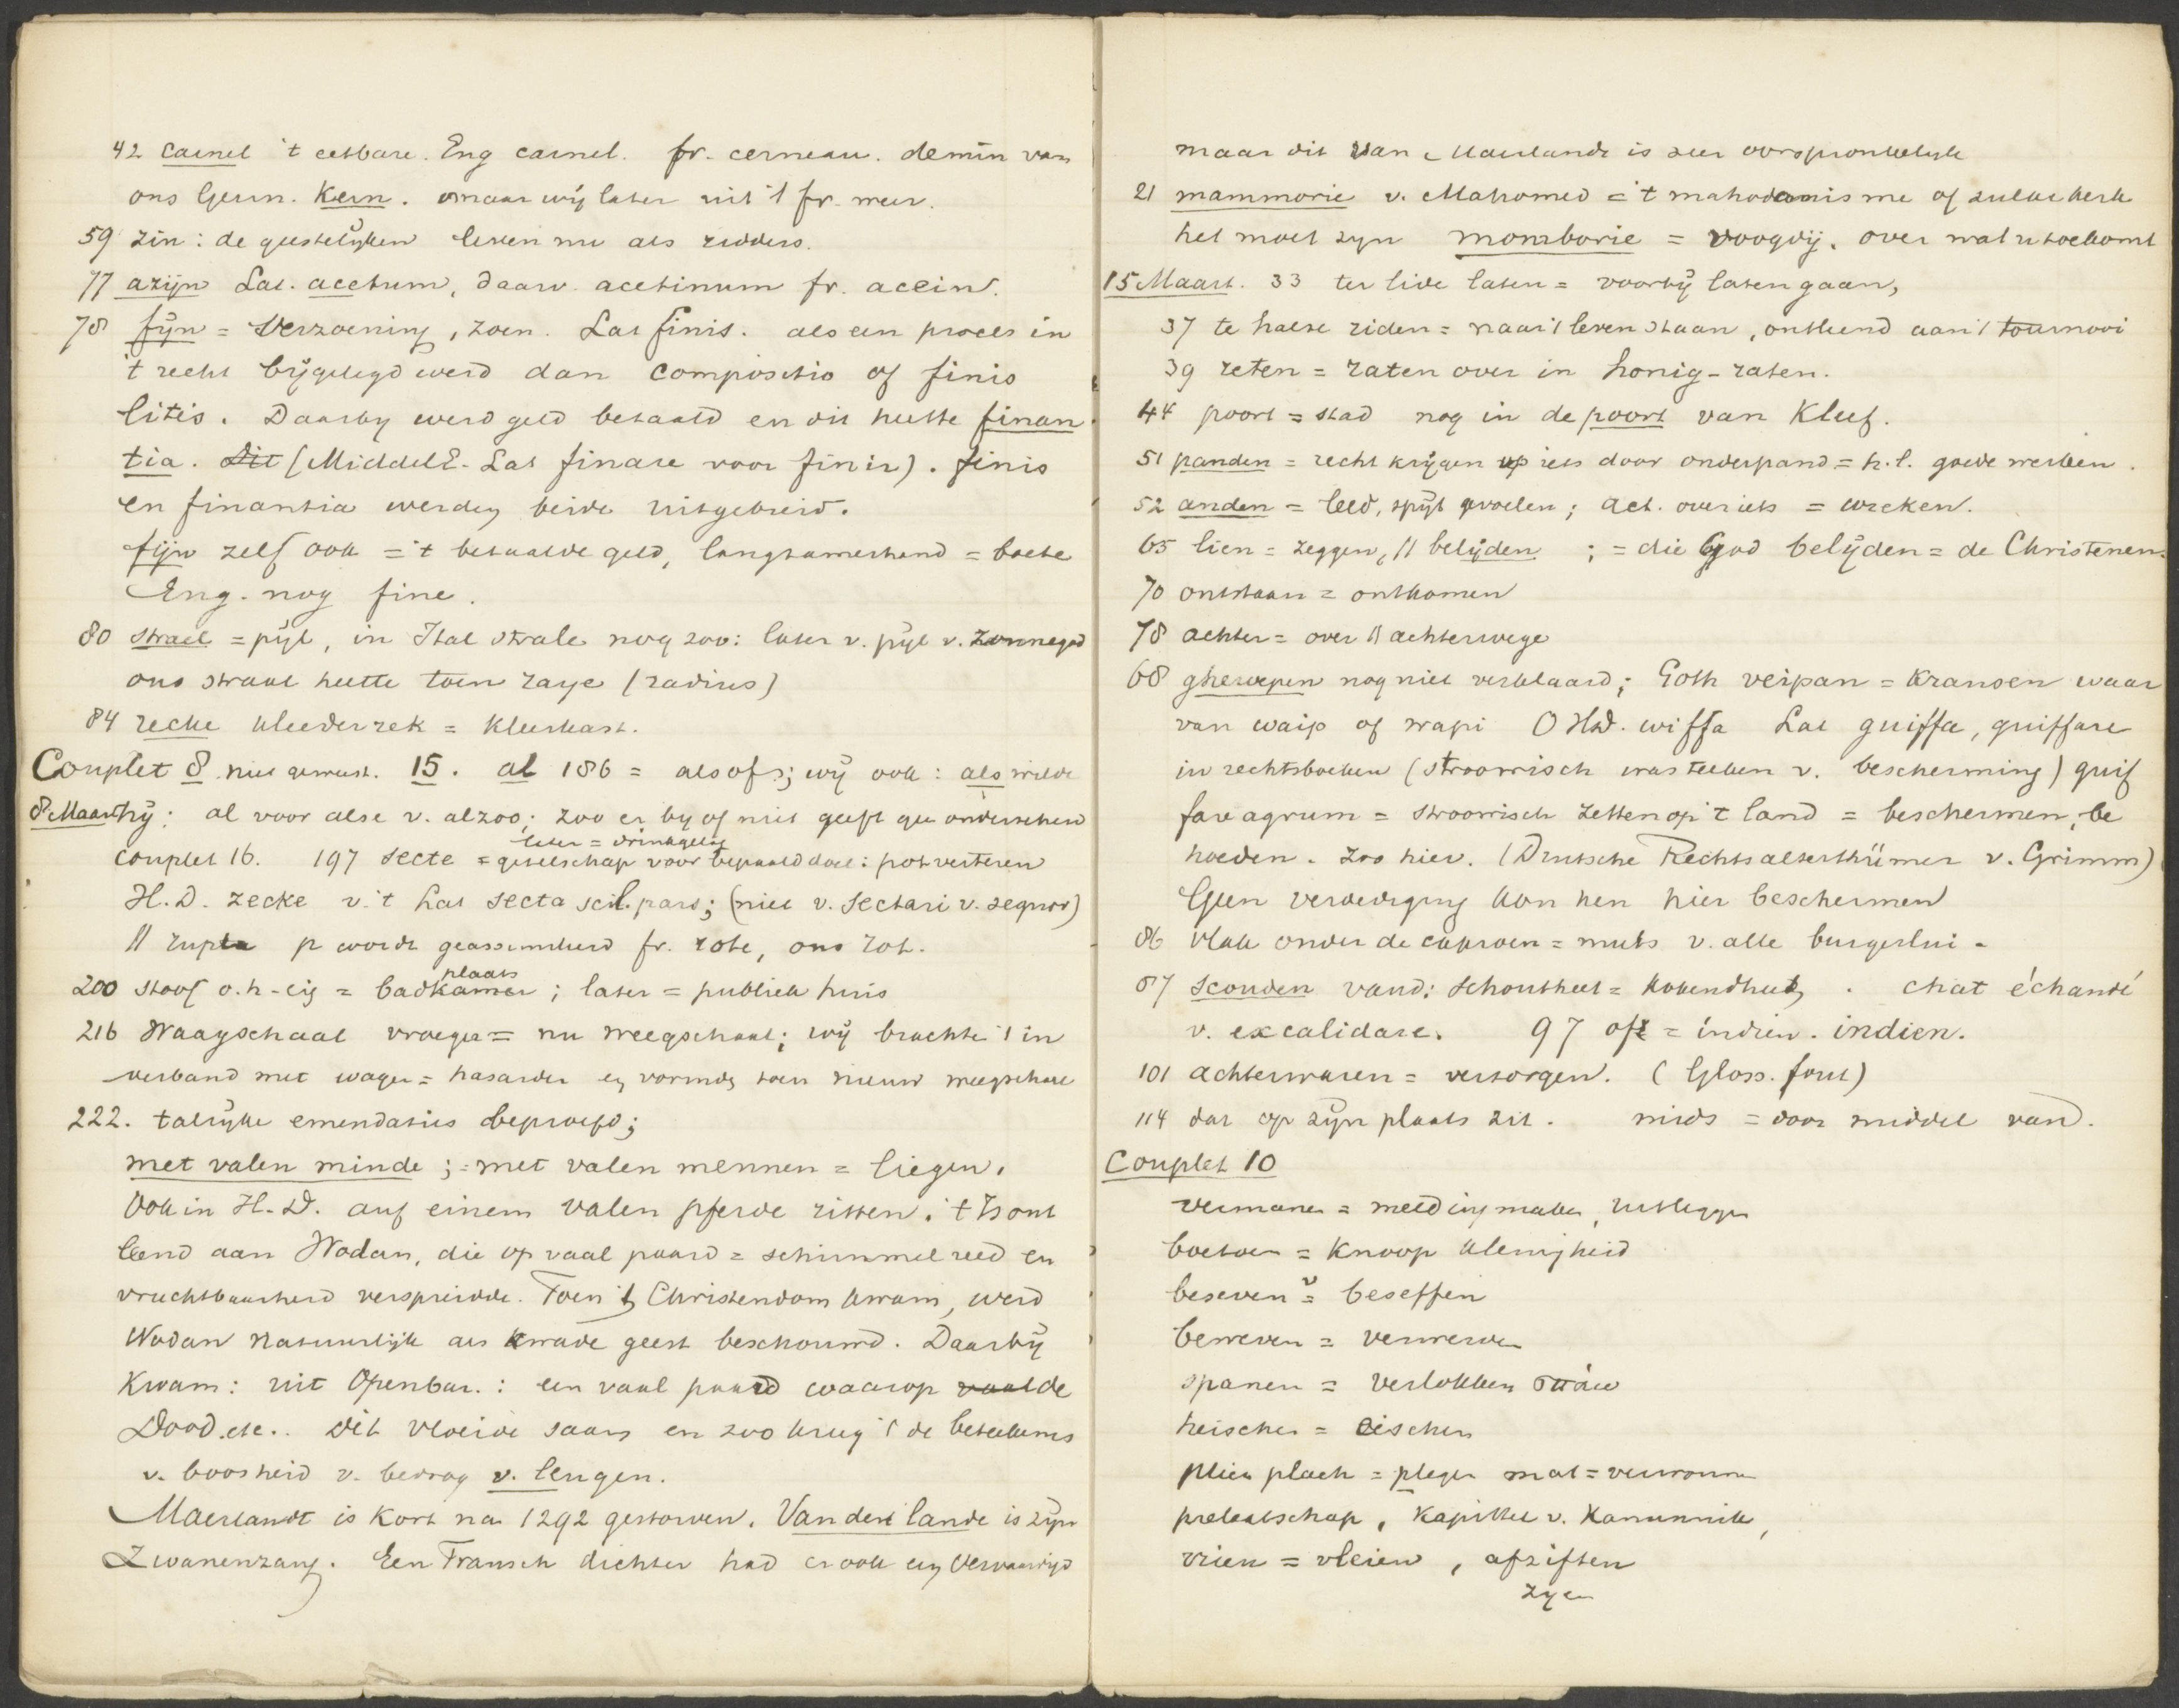 42 carnel 't eetbare. Eng carnel. fr. cerneau. demin van
ons Germ. Kern. maar wij later uit 't fr. weer.
59 zin: de geestelijken leven nu als ridders.
77 azijn Lat. acetum, daarv. acetinum fr. acein.
78 fijn = Verzoening, zoen. Lat finis. als een proces in
't recht bijgelegd werd dan compositio of finis
litis. Daarby werd geld betaald en dit heette finan
tia. Dit (MiddelE. Lat finare voor finir). finis
en finantia werden beide uitgebreid.
fijn zelf ook = 't betaalde geld, langzamerhand = boete
Eng. nog fine.
80 strael = pijl, in Ital strale nog zoo: later v. pijl v. zonnegod
ons straal heette toen raye (radius)
84 recke kleederrek = Kleerkast.
Couplet 8 niet gewust. 15. al 186 = alsof; wij ook: als wilde
8 Maart hij: al voor alse v. alzoo; zoo er by of niet geeft gee onderscheid
later = drinkgelag
couplet 16. 197 secte = gezelschap voor bepaald doel: potverteren
H.D. zecke v. 't Lat secta scil. pars; (niet v. sectari v. sequor)
// rupta p wordt geassimileerd fr. rote, ons rot.
plaats
200 stoof o.h-eig = badkamer; later = publiek huis
216 Waagschaal vroeger = nu weegschaal; wij brachten 't in
verband met wagen = hasarder en vormden toen nieuw weegschaal
222. talrijke emendaties beproefd;
met valen minde ; = met valen mennen = liegen.
Ook in H.D. auf einem valen pferde ritten. 't Is ont
leend aan Wodan, die op vaal paard = schimmel reed en
vruchtbaarheid verspreidde. Toen 't Christendom kwam, werd
Wodan natuurlijk als kwade geest beschouwd. Daarbij
Kwam: uit Openbar.: een vaal paard waarop vaal de
Dood etc.. Dit vloeide saam en zoo kreeg 't de beteekenis
v. boosheid v. bedrog v. leugen.
Maerlandt is kort na 1292 gestorven. Van den lande is zijn
Zwanenzang. Een Fransch dichter had er ook een vervaardigd
maar dit van Maerlandt is zeer oorspronkelijk
21 mammorie v. Mahomed = 't mahodanisme of zulke kerk
het moet zyn momborie = voogdij. over wat u toekomt
15 Maart. 33 ter lide laten = voorbij laten gaan,
37 te halse riden = naar 't leven staan, ontleend aan 't tournooi
39 reten = raten over in honig-raten.
44 poort = stad nog in de poort van Kleef.
51 panden = recht krijgen op iets door onderpand = h.l. goede werken.
52 anden = leed, spijt voelen; act. over iets = wreken.
65 lien = zeggen, // belijden ; = die God belijden = de Christenen.
70 ontstaan = ontkomen
78 achter = over // achterwege
68 gherepen nog niet verklaard; Goth veipan = Kransen waar
van waip of wapi OHd. wiffa Lat guiffa, guiffare
in rechtsboeken (stroowisch was teeken v. bescherming) guif
fare agrum = stroowisch zetten op 't land = beschermen, be
hoeden. Zoo hier. (Deutsche Rechtsalterthümer v. Grimm)
Geen verdediging kon hen hier beschermen
86 Vlak onder de caproen = muts v. alle burgerlui -
87 scouden vand: schoutheet = kokendheet, . chat échaudé
v. excalidare. 97 oft = indien. indien.
101 achterwaren = verzorgen. (Gloss. fout)
114 dat op zijn plaats zit. mids = door middel van.
Couplet 10
vermanen = melding maken, uitleggen
boetoen = Knoop kleinigheid
beseven = beseffen
beweren = verwerven
spanen = verlokken σπάω
heischen = eischen
plien plach = plegen mat = verwonnen
prelaatschap, Kapittel v. Kanunnik,
vrien = vleien, afziften
zyen